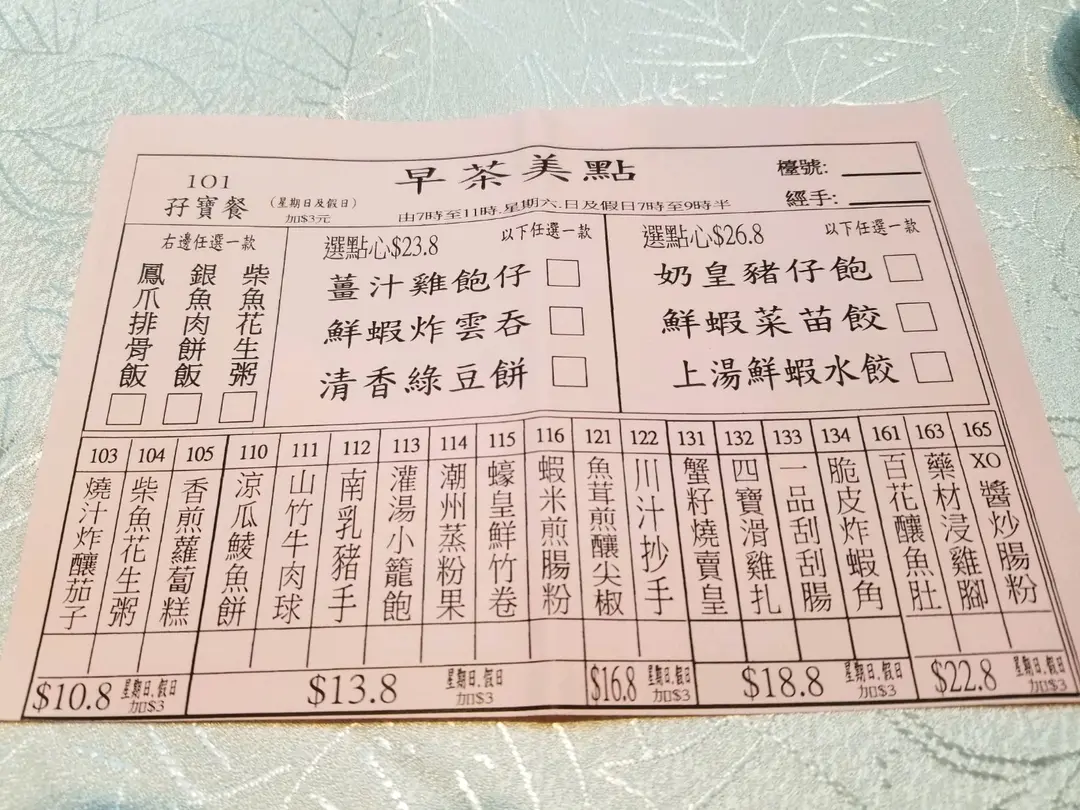 早茶美點
檯號:
經手:
101
孖寶餐
(星期日及假日)
加$3元
由7時至11時.星期六.日及假日7時至9時半
右邊任選一款
鳳爪排骨飯
銀魚肉餅飯
柴魚花生粥
選點心$23.8
以下任選一款
薑汁雞飽仔
鮮蝦炸雲吞
清香綠豆餅
選點心$26.8
以下任選一款
奶皇豬仔飽
鮮蝦菜苗餃
上湯鮮蝦水餃
103
燒汁炸釀茄子
104
柴魚花生粥
105
香煎蘿蔔糕
110
涼瓜鯪魚餅
111
山竹牛肉球
112
南乳豬手
113
灌湯小籠飽
114
潮州蒸粉果
115
蠔皇鮮竹卷
116
蝦米煎腸粉
121
魚茸煎釀尖椒
122
川汁抄手
131
蟹籽燒賣皇
132
四寶滑雞扎
133
一品刮刮腸
134
脆皮炸蝦角
161
百花釀魚肚
163
藥材浸雞腳
165
XO醬炒腸粉
$10.8
星期日.假日
加$3
$13.8
星期日.假日
加$3
$16.8
星期日.假日
加$3
$18.8
星期日.假日
加$3
$22.8
星期日.假日
加$3